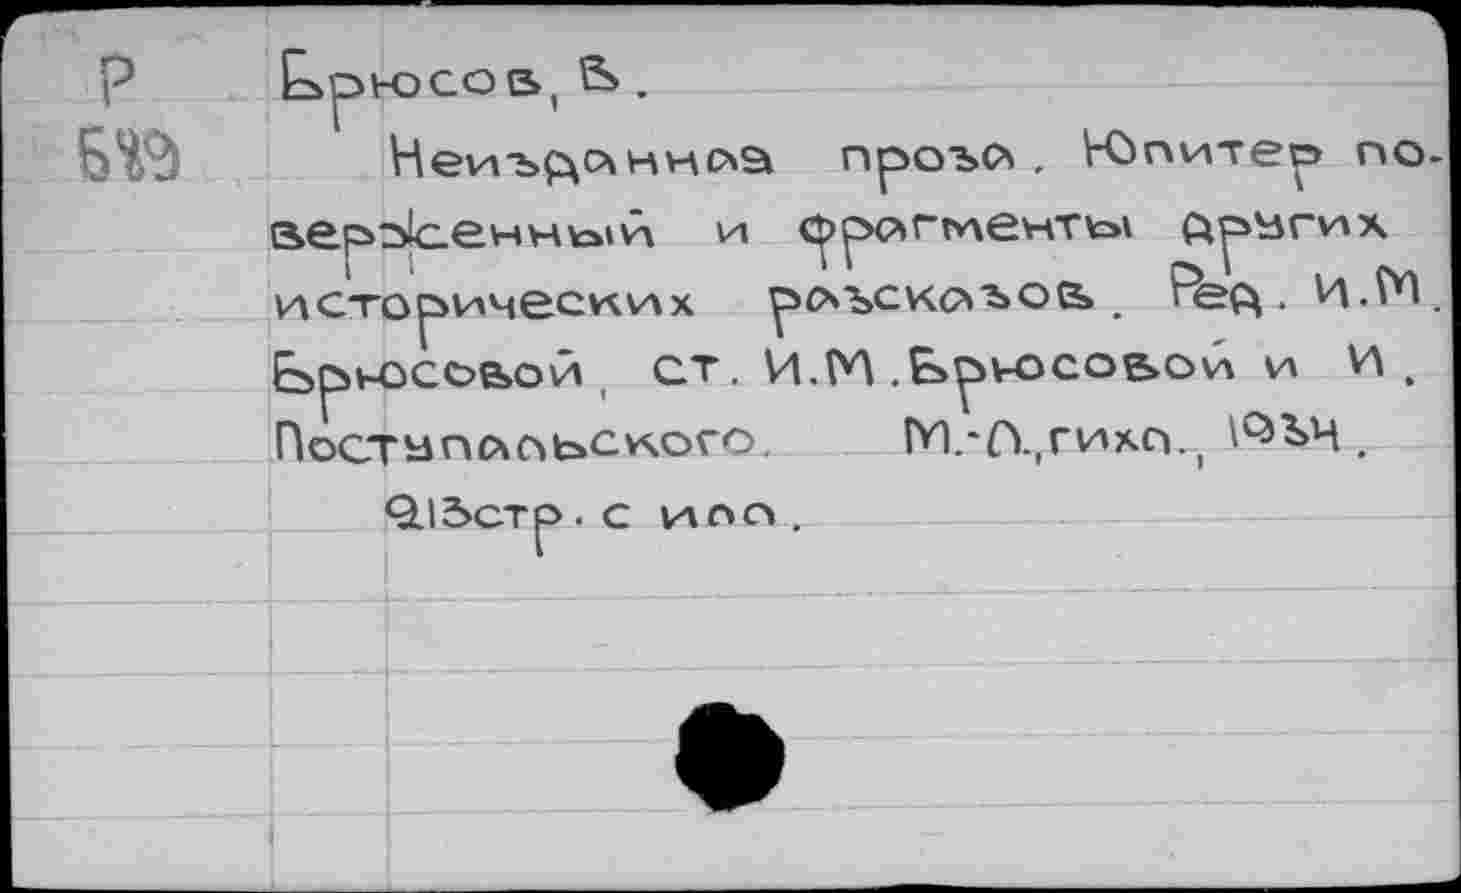 Р Брюсов, В.
Б89 Неизданная проза. Юпитер по-
верженный и фрагменты других
исторических рассказов. Ред. И.М.
Брюсовой, ст. И.М.Брюсовой и И.
Поступальского. М.-Л.,гихл., 1934.
213стр. с илл.